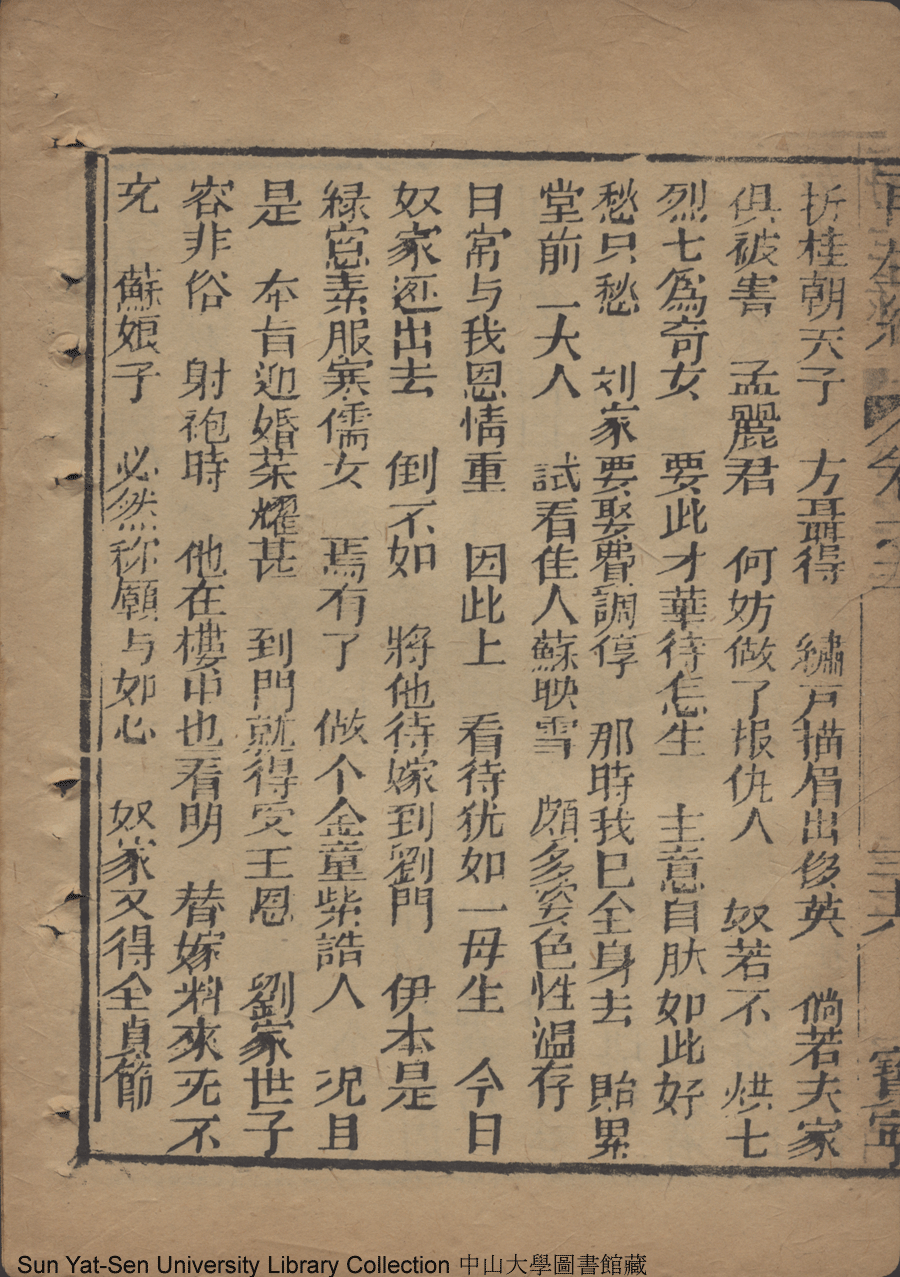 折桂朝天子　方聶得　繡戸描眉出俊英　倘若夫家
俱被害　孟麗君　何妨做了报仇人　奴若不　烘七
烈七爲奇女　要此才華待怎生　主意自肰如此好
愁只愁　刘家要娶費調停　那時我已全身去　貽累
堂前一大人　試看佳人蘇映雪　頗多姿色性溫存
日常与我恩情重　因此上　看待犹如一母生　今日
奴家逛出去　倒不如　將他待嫁到劉門　伊本是
緑窓素服寒儒女　焉有了　做个金童紫誥人　况且
是　本旨迎婚荣耀甚　到門就得受王恩　劉家世子
容非俗　射袍時　他在樓中也看明　替嫁料來无不
充　蘇娘子　必然称願与如心　奴家又得全貞節
卷之五
三十八
寶寧
Sun Yat-Sen University Library Collection 中山大學圖書館藏